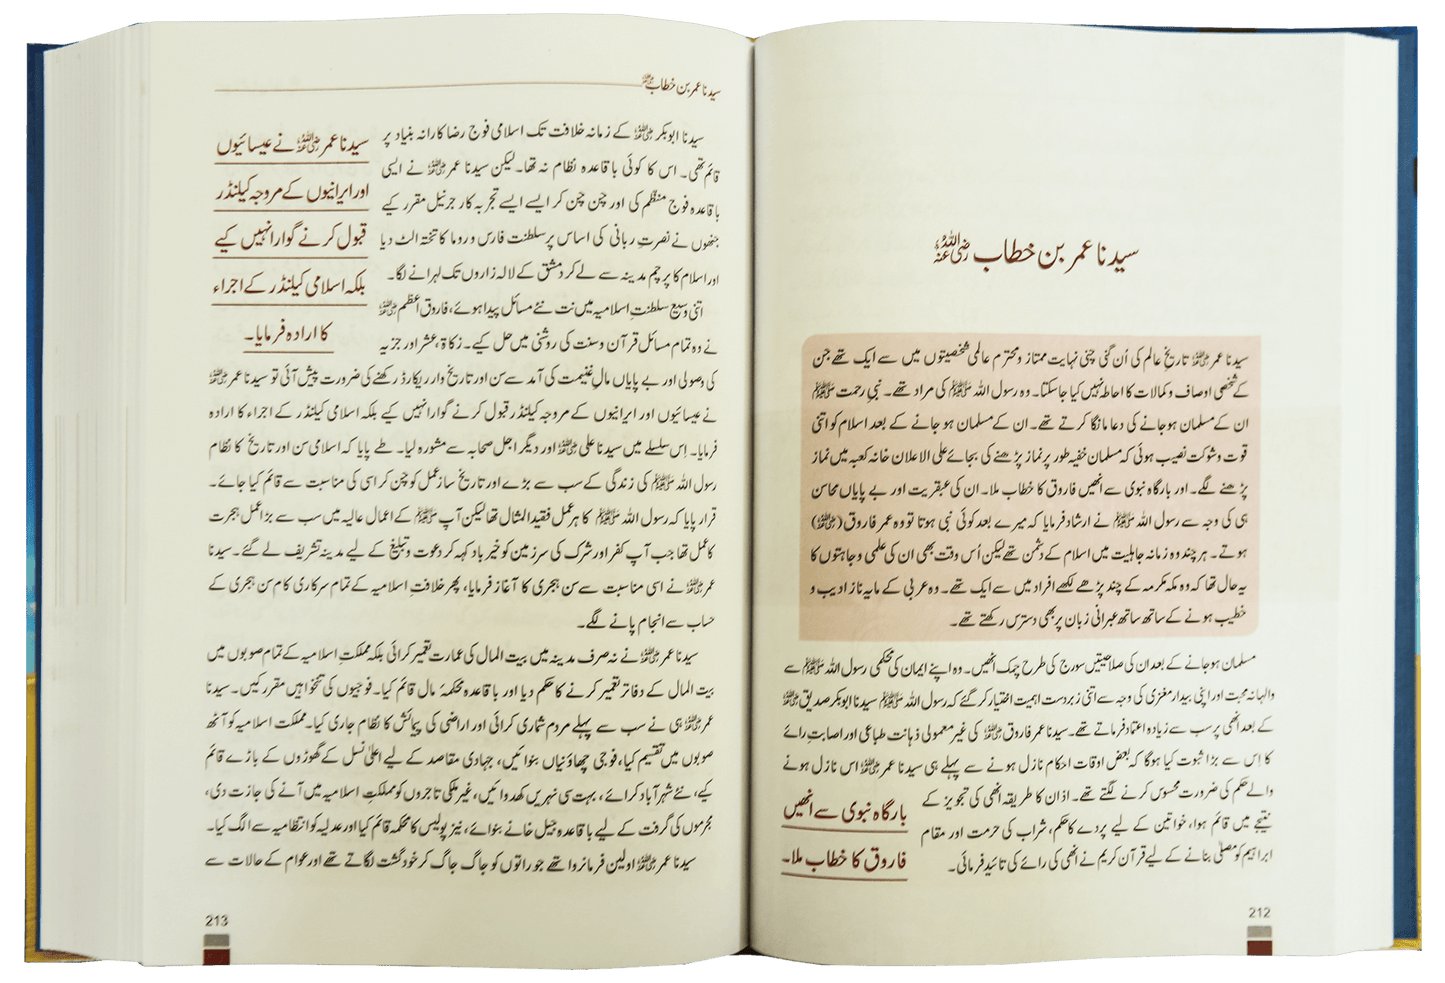 سیدنا عمر بن خطاب رضی اللہ عنہ
سیدنا عمر رضی اللہ عنہ تاریخ عالم کی اُن گنی چنی نہایت ممتاز و محترم عالمی شخصیتوں میں سے ایک تھے جن
کے شخصی اوصاف و کمالات کا احاطہ نہیں کیا جاسکتا۔ وہ رسول اللہ ﷺ کی مراد تھے۔ نبیِ رحمت ﷺ
ان کے مسلمان ہوجانے کی دعا مانگا کرتے تھے۔ ان کے مسلمان ہو جانے کے بعد اسلام کو اتنی
قوت و شوکت نصیب ہوئی کہ مسلمان خفیہ طور پر نماز پڑھنے کی بجائے علی الاعلان خانہ کعبہ میں نماز
پڑھنے لگے۔ اور بارگاہ نبوی سے انھیں فاروق کا خطاب ملا۔ ان کی عبقریت اور بے پایاں محاسن
ہی کی وجہ سے رسول اللہ ﷺ نے ارشاد فرمایا کہ میرے بعد کوئی نبی ہوتا تو وہ عمر فاروق (رضی اللہ عنہ)
ہوتے۔ ہر چند وہ زمانہ جاہلیت میں اسلام کے دشمن تھے لیکن اُس وقت بھی ان کی علمی وجاہتوں کا
یہ حال تھا کہ وہ مکہ مکرمہ کے چند پڑھے لکھے افراد میں سے ایک تھے۔ وہ عربی کے مایہ ناز ادیب و
خطیب ہونے کے ساتھ ساتھ عبرانی زبان پر بھی دسترس رکھتے تھے۔
مسلمان ہوجانے کے بعد ان کی صلاحیتیں سورج کی طرح چمک اٹھیں۔ وہ اپنے ایمان کی محکمی رسول اللہ ﷺ سے
والہانہ محبت اور اپنی بیدار مغزی کی وجہ سے اتنی زبردست اہمیت اختیار کر گئے کہ رسول اللہ ﷺ سیدنا ابوبکر صدیق رضی اللہ عنہ
کے بعد انھی پر سب سے زیادہ اعتماد فرماتے تھے۔ سیدنا عمر فاروق رضی اللہ عنہ کی غیر معمولی ذہانت طباعی اور اصابتِ رائے
کا اِس سے بڑا ثبوت کیا ہوگا کہ بعض اوقات احکام نازل ہونے سے پہلے ہی سیدنا عمر رضی اللہ عنہ اس نازل ہونے
والے حکم کی ضرورت محسوس کرنے لگتے تھے۔ اذان کا طریقہ انھی کی تجویز کے
نتیجے میں قائم ہوا، خواتین کے لیے پردے کا حکم، شراب کی حرمت اور مقام
ابراہیم کو مصلیٰ بنانے کے لیے قرآن کریم نے انھی کی رائے کی تائید فرمائی۔
بارگاہ نبوی سے انھیں
فاروق کا خطاب ملا۔
212
سیدنا عمر بن خطاب رضی اللہ عنہ
سیدنا ابوبکر رضی اللہ عنہ کے زمانہ خلافت تک اسلامی فوج رضا کارانہ بنیاد پر
قائم تھی۔ اس کا کوئی باقاعدہ نظام نہ تھا۔ لیکن سیدنا عمر رضی اللہ عنہ نے ایسی
باقاعدہ فوج منظّم کی اور چن چن کر ایسے ایسے تجربہ کار جرنیل مقرر کیے
جنھوں نے نصرتِ ربانی کی اساس پر سلطنت فارس و روما کا تختہ الٹ دیا
اور اسلام کا پرچم مدینہ سے لے کر دمشق کے لالہ زاروں تک لہرانے لگا۔
اتنی وسیع سلطنتِ اسلامیہ میں نت نئے مسائل پیدا ہوئے، فاروق اعظم رضی اللہ عنہ
نے وہ تمام مسائل قرآن و سنت کی روشنی میں حل کیے۔ زکاۃ، عشر اور جزیہ
سیدنا عمر رضی اللہ عنہ نے عیسائیوں
اور ایرانیوں کے مروجہ کیلنڈر
قبول کرنے گوارا نہیں کیے
بلکہ اسلامی کیلنڈر کے اجراء
کا ارادہ فرمایا۔
کی وصولی اور بے پایاں مالِ غنیمت کی آمد سے سن اور تاریخ وار ریکارڈ رکھنے کی ضرورت پیش آئی تو سیدنا عمر رضی اللہ عنہ
نے عیسائیوں اور ایرانیوں کے مروجہ کیلنڈر قبول کرنے گوارا نہیں کیے بلکہ اسلامی کیلنڈر کے اجراء کا ارادہ
فرمایا۔ اِس سلسلے میں سیدنا علی رضی اللہ عنہ اور دیگر اجل صحابہ سے مشورہ لیا۔ طے پایا کہ اسلامی سن اور تاریخ کا نظام
رسول اللہ ﷺ کی زندگی کے سب سے بڑے اور تاریخ ساز عمل کو چن کر اسی کی مناسبت سے قائم کیا جائے۔
قرار پایا کہ رسول اللہ ﷺ کا ہر عمل فقید المثال تھا لیکن آپ ﷺ کے اعمال عالیہ میں سب سے بڑا عمل ہجرت
کا عمل تھا جب آپ کفر اور شرک کی سرزمین کو خیر باد کہہ کر دعوت و تبلیغ کے لیے مدینہ تشریف لے گئے۔ سیدنا
عمر رضی اللہ عنہ نے اسی مناسبت سے سن ہجری کا آغاز فرمایا، پھر خلافتِ اسلامیہ کے تمام سرکاری کام سن ہجری کے
حساب سے انجام پانے لگے۔
سیدنا عمر رضی اللہ عنہ نے نہ صرف مدینہ میں بیت المال کی عمارت تعمیر کرائی بلکہ مملکتِ اسلامیہ کے تمام صوبوں میں
بیت المال کے دفاتر تعمیر کرنے کا حکم دیا اور باقاعدہ محکمۂ مال قائم کیا۔ فوجیوں کی تنخواہیں مقرر کیں۔ سیدنا
عمر رضی اللہ عنہ ہی نے سب سے پہلے مردم شماری کرائی اور اراضی کی پیمائش کا نظام جاری کیا۔ مملکت اسلامیہ کو آٹھ
صوبوں میں تقسیم کیا، فوجی چھاؤنیاں بنوائیں، جہادی مقاصد کے لیے اعلیٰ نسل کے گھوڑوں کے باڑے قائم
کیے، نئے شہر آباد کرائے، بہت سی نہریں کھدوائیں، غیر ملکی تاجروں کو مملکتِ اسلامیہ میں آنے کی جازت دی،
مجرموں کی گرفت کے لیے باقاعدہ جیل خانے بنوائے، نیز پولیس کا محکمہ قائم کیا اور عدلیہ کو انتظامیہ سے الگ کیا۔
سیدنا عمر رضی اللہ عنہ اولین فرمانروا تھے جو راتوں کو جاگ جاگ کر خود گشت لگاتے تھے اور عوام کے حالات سے
213